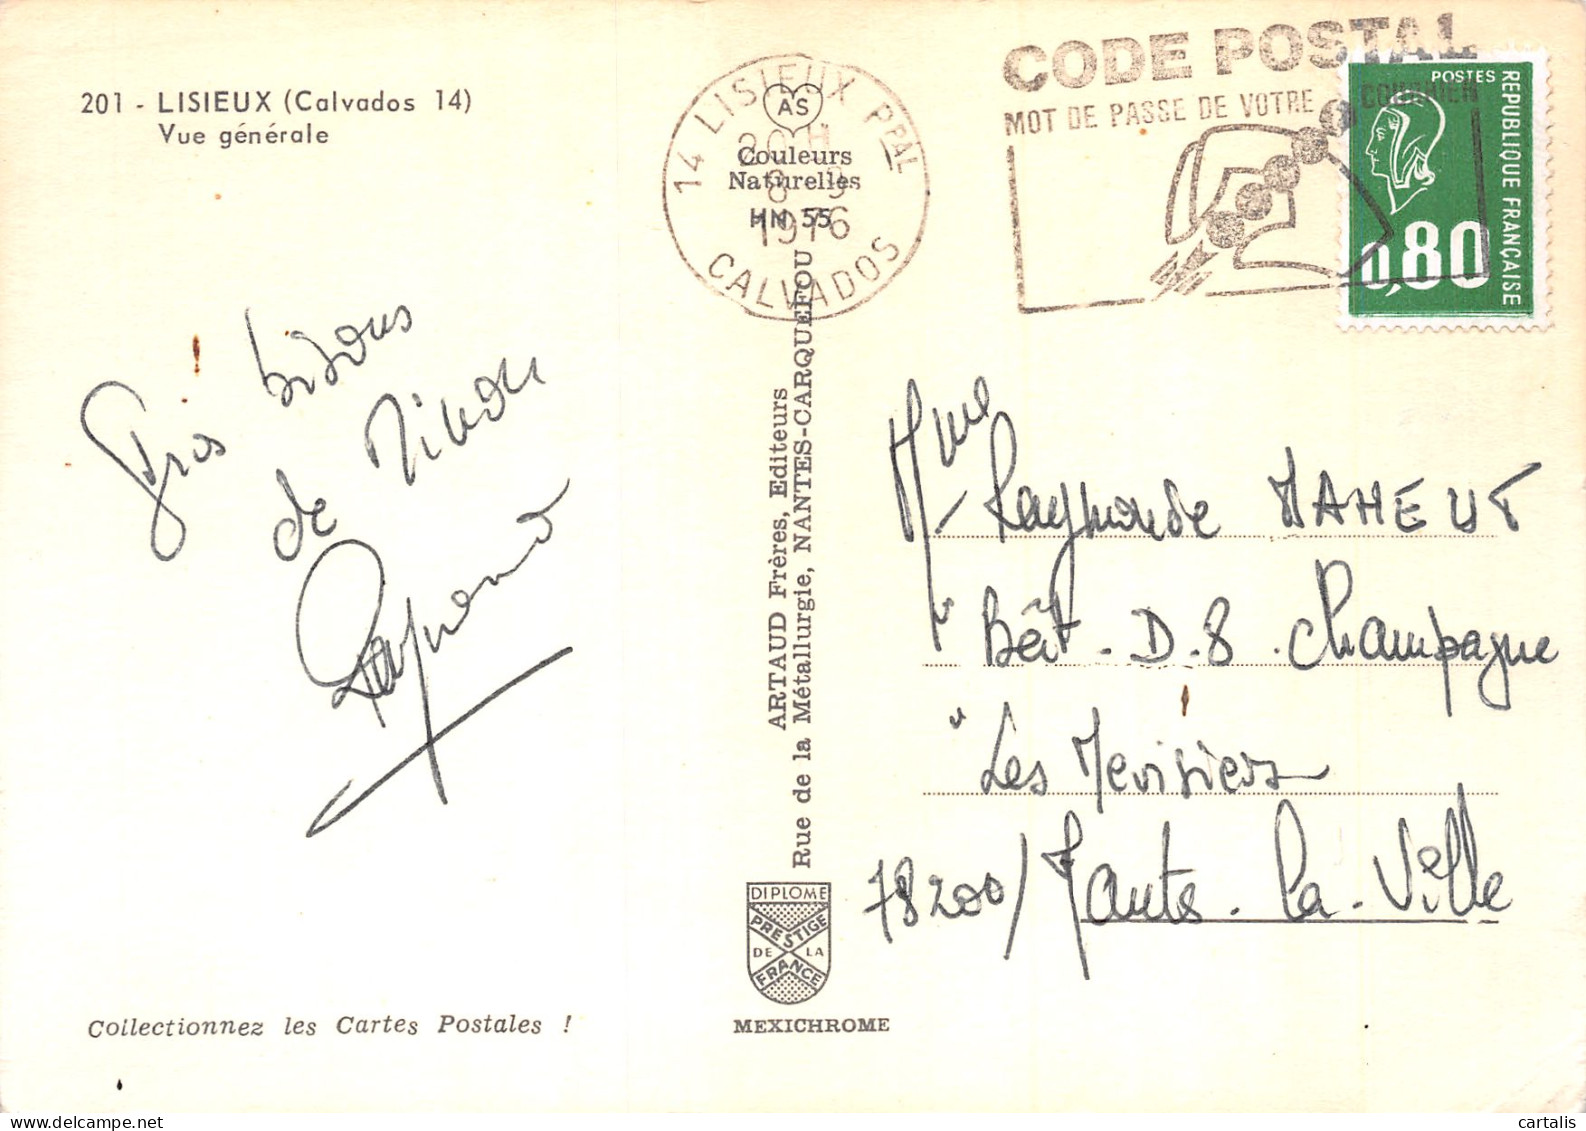 201 - LISIEUX (Calvados 14)
Vue générale
Gros bisous
de Ninou
Raymond
Collectionnez les Cartes Postales !
14 LISIEUX PPAL
20 H
8 - 9
1976
CALVADOS
AS
Couleurs
Naturelles
HN 55
ARTAUD Frères, Editeurs
Rue de la Métallurgie, NANTES-CARQUEFOU
DIPLOME
PRESTIGE
DE LA
FRANCE
MEXICHROME
CODE POSTAL
MOT DE PASSE DE VOTRE COURRIER
POSTES
REPUBLIQUE FRANÇAISE
0,80
Mme Raymonde MAHEUT
" Bât. D.8. Champagne
" Les
78200/ Mante. La. Ville
www.delcampe.net
cartalis